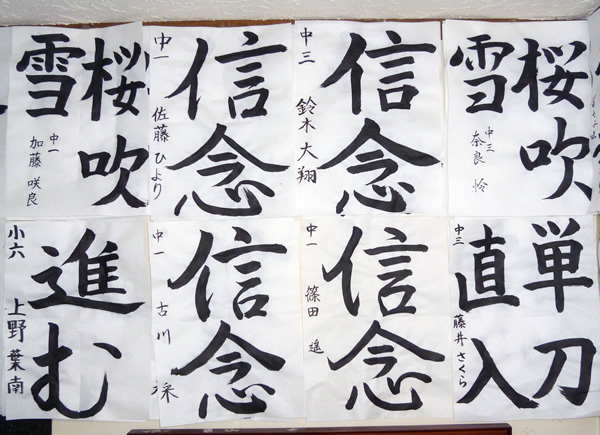 桜吹
雪
中一
加藤 咲良
信念
中一
佐藤 ひより
信念
中三
鈴木 大翔
桜吹
雪
中三
奈良 怜
進む
小六
上野 葉南
信念
中一
古川 采
信念
中一
篠田 遥
単刀
直入
中三
藤井 さくら